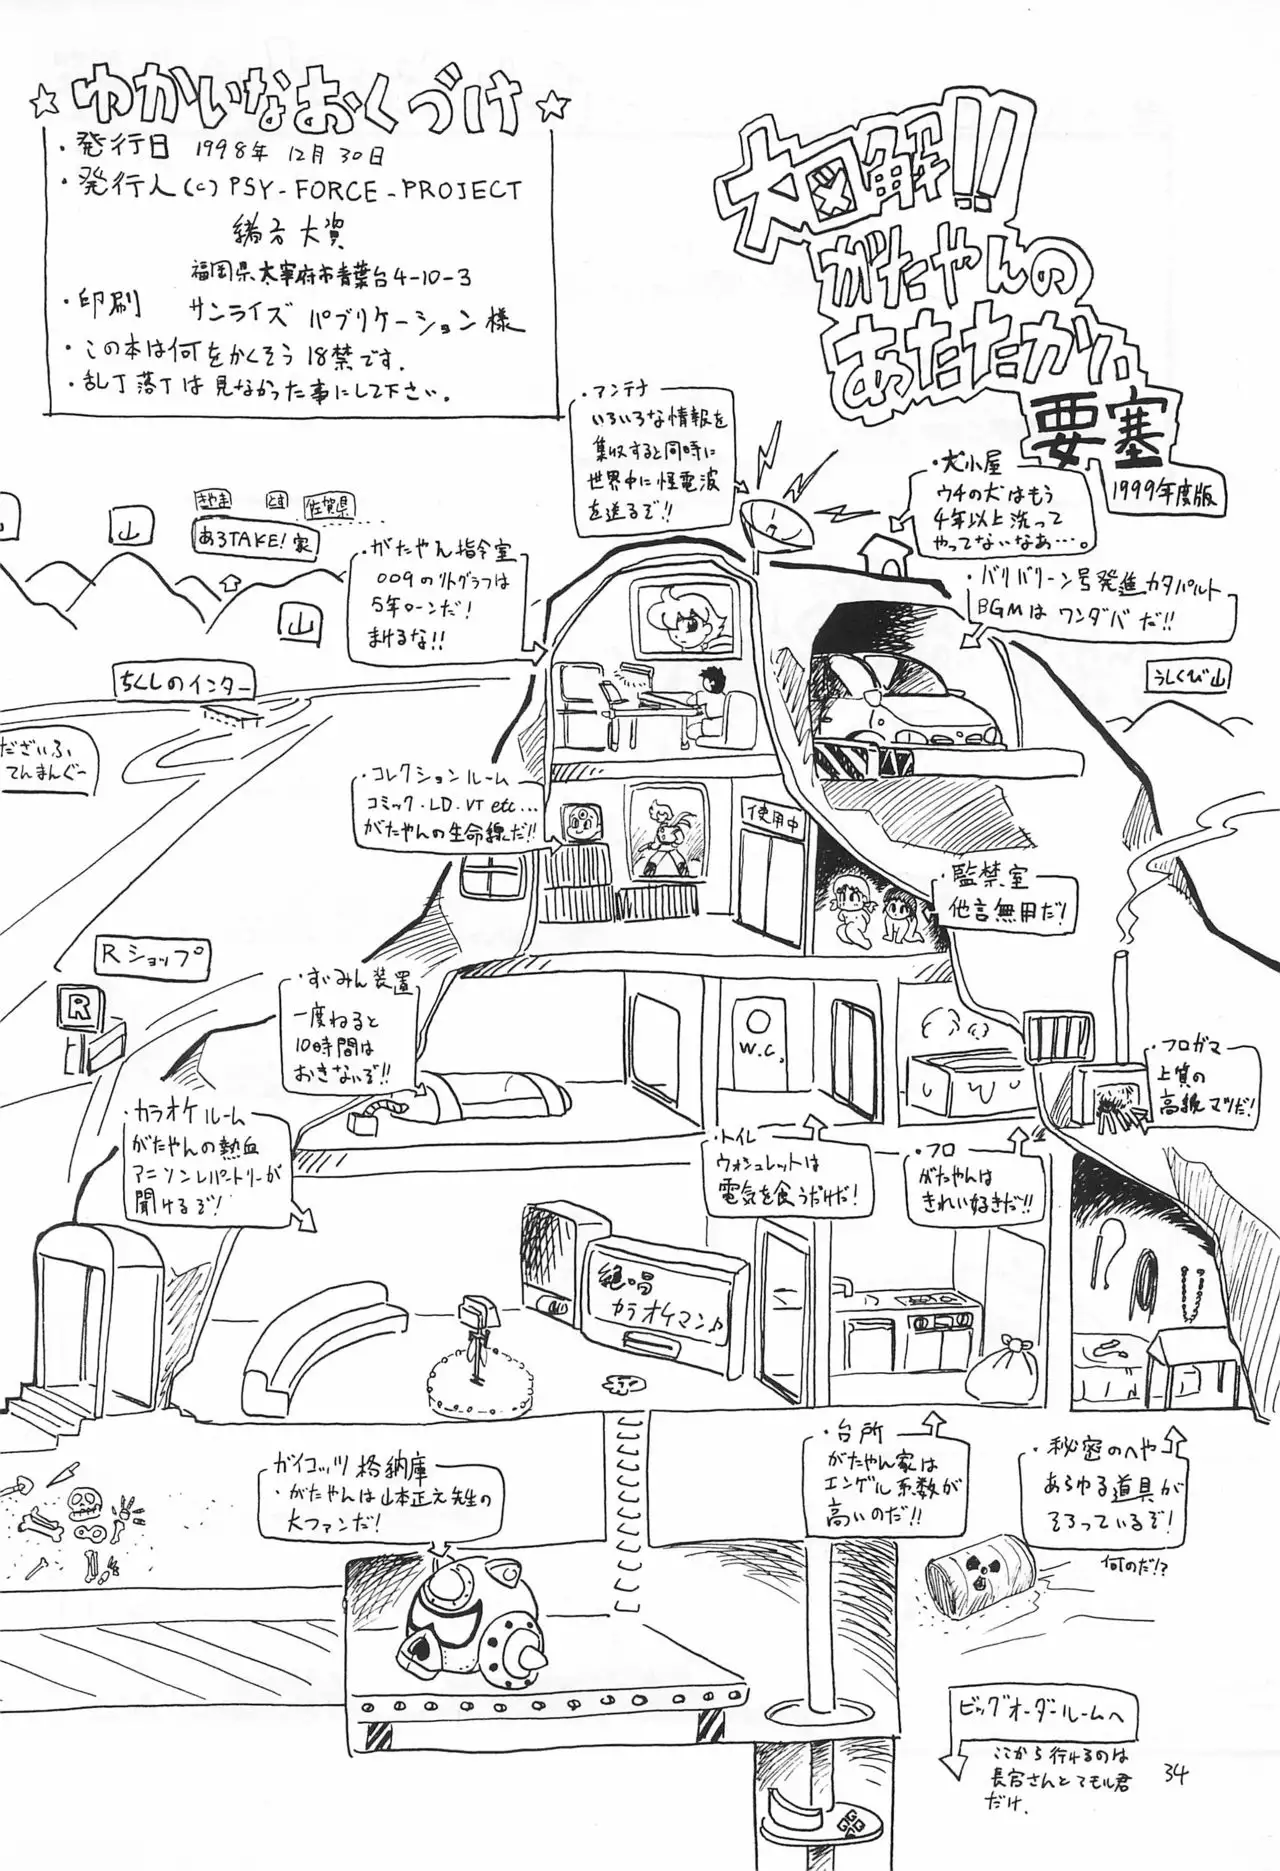 ☆ゆかいなおくづけ☆
・発行日 1998年 12月 30日
・発行人(c) PSY-FORCE-PROJECT
緒方大資
福岡県太宰府市青葉台4-10-3
・印刷 サンライズ パブリケーション様
・この本は何をかくそう 18禁です.
・乱丁落丁は見なかった事にして下さい.
大図解!!
がたやんの
あたたかい
要塞
1999年度版
・アンテナ
いろいろな情報を
集収すると同時に
世界中に怪電波
を送るぞ!!
・犬小屋
ウチの犬はもう
4年以上洗って
やってないなあ…。
・バリバリーン号発進カタパルト
BGMは ワンダバだ!!
山
山
きやま
とす
佐賀県
あるTAKE!家
山
・がたやん指令室
009のリトグラフは
5年ローンだ!
まけるな!!
うしくび山
ちくしのインター
だざいふ
てんまんぐー
・コレクションルーム
コミック・LD・VT etc…
がたやんの生命線だ!!
使用中
・監禁室
他言無用だ!
Rショップ
R
・すいみん装置
一度ねると
10時間は
おきないぞ!!
W.C.
・フロガマ
上質の
高級マツだ!
・カラオケルーム
がたやんの熱血
アニソンレパートリーが
聞けるぞ!
・トイレ
ウォシュレットは
電気を食うだけだ!
・フロ
がたやんは
きれい好きだ!!
絶唱
カラオケマン♪
ガイコッツ格納庫
・がたやんは山本正之先生の
大ファンだ!
・台所
がたやん家は
エンゲル系数が
高いのだ!!
・秘密のへや
あらゆる道具が
そろっているぞ!
何のだ!?
ビッグオーダールームへ
ここから行けるのは
長官さんとてもル君
だけ.
GG
GG
34